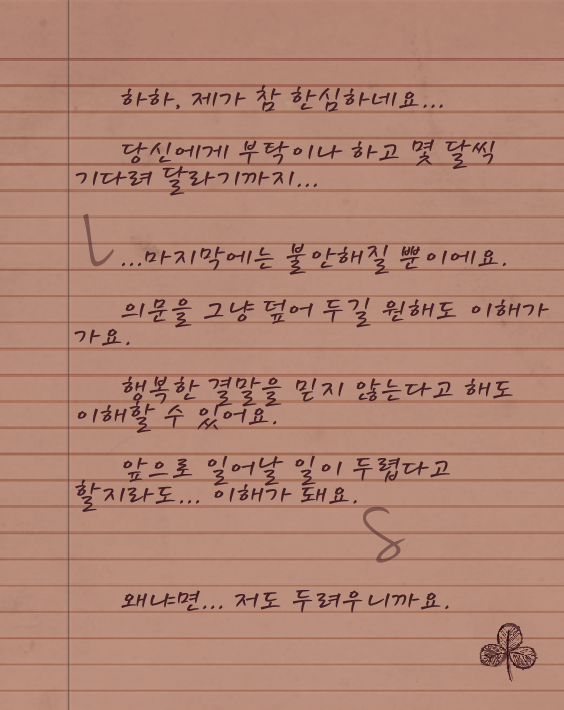 하하, 제가 참 한심하네요...
당신에게 부탁이나 하고 몇 달씩
기다려 달라기까지...
...마지막에는 불안해질 뿐이에요.
의문을 그냥 덮어 두길 원해도 이해가
가요.
행복한 결말을 믿지 않는다고 해도
이해할 수 있어요.
앞으로 일어날 일이 두렵다고
할지라도... 이해가 돼요.
왜냐면... 저도 두려우니까요.